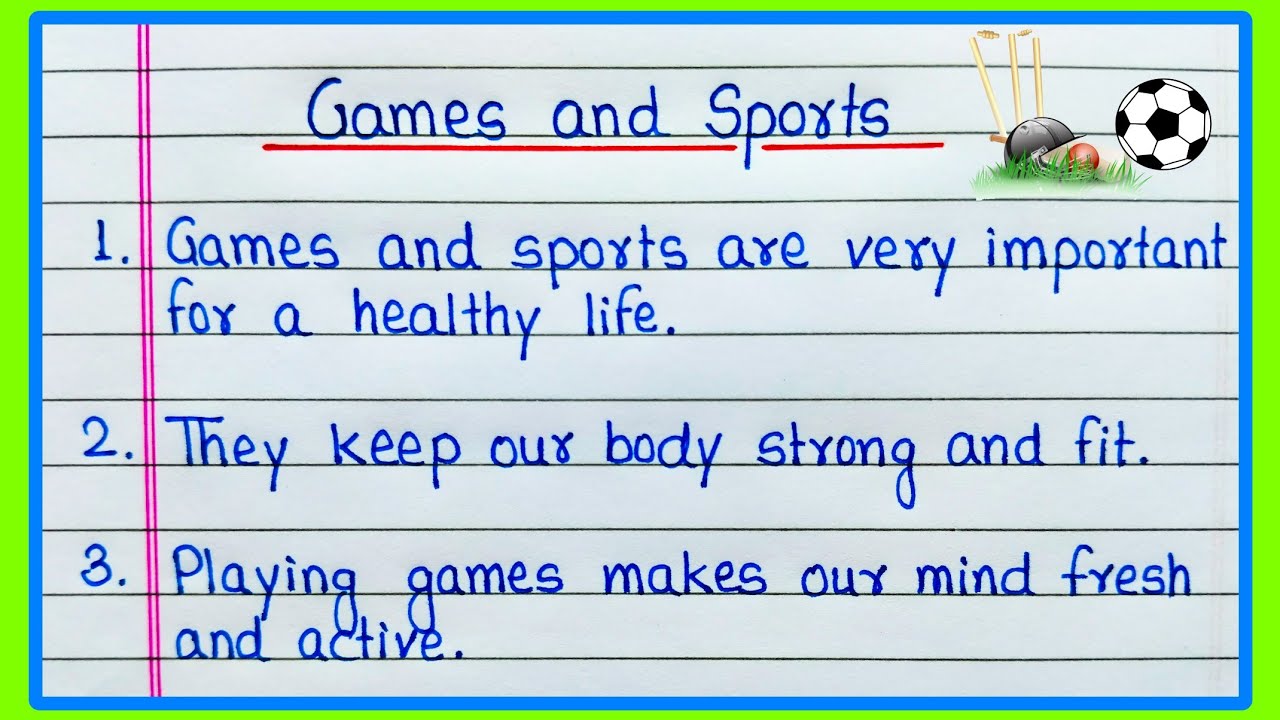 Games and Sports
1. Games and sports are very important
for a healthy life.
2. They keep our body strong and fit.
3. Playing games makes our mind fresh
and active.